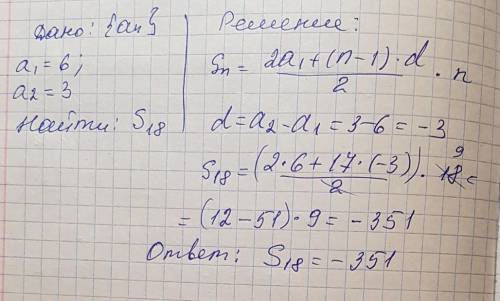 Дано: {an}
a1 = 6;
a2 = 3
Найти: S18
Решение:
Sn = (2a1 + (n-1)·d)/2 · n
d = a2 - a1 = 3 - 6 = -3
S18 = (2·6 + 17·(-3))/2 · 18 9 =
= (12 - 51)·9 = -351
Ответ: S18 = -351